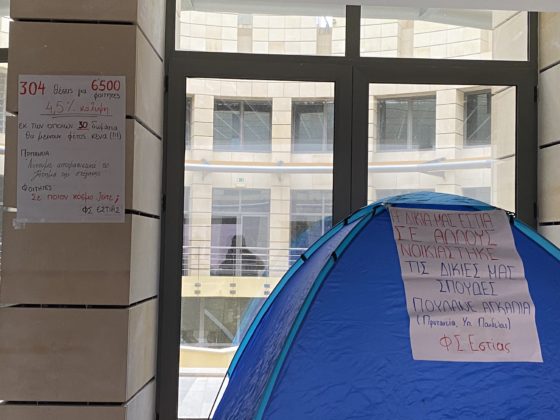 304 θέσεις για 6500
φοιτητές
4,5% κάλυψη
εκ των οποίων 30 δωμάτια
θα μείνουν φέτος κενά (!!!)
Πρυτανεία:
το
ζήτημα της στέγασης
Φοιτητές
Σε ποιον κόσμο ζείτε;
ΦΣ ΕΣΤΙΑΣ
Η ΔΙΚΙΑ ΜΑΣ ΕΣΤΙΑ
ΣΕ ΑΛΛΟΥΣ
ΝΟΙΚΙΑΣΤΗΚΕ
ΤΙΣ ΔΙΚΙΕΣ ΜΑΣ
ΣΠΟΥΔΕΣ
ΠΟΥΛΑΝΕ ΑΓΚΑΛΙΑ
(Πρυτανεία, Υπ. Παιδείας)
ΦΣ Εστίας